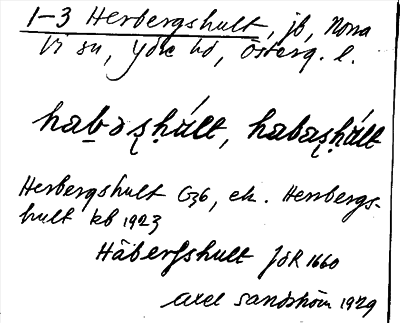 1–3 Herbergshult, jb, Norra
Vi sn, Ydre hd, Österg. l.
habəʂhált, habaʂhált
Herbergshult G36, ek. Herrbergs-
hult kb 1923
Häberfshult JdR 1660
Axel Sandström 1929